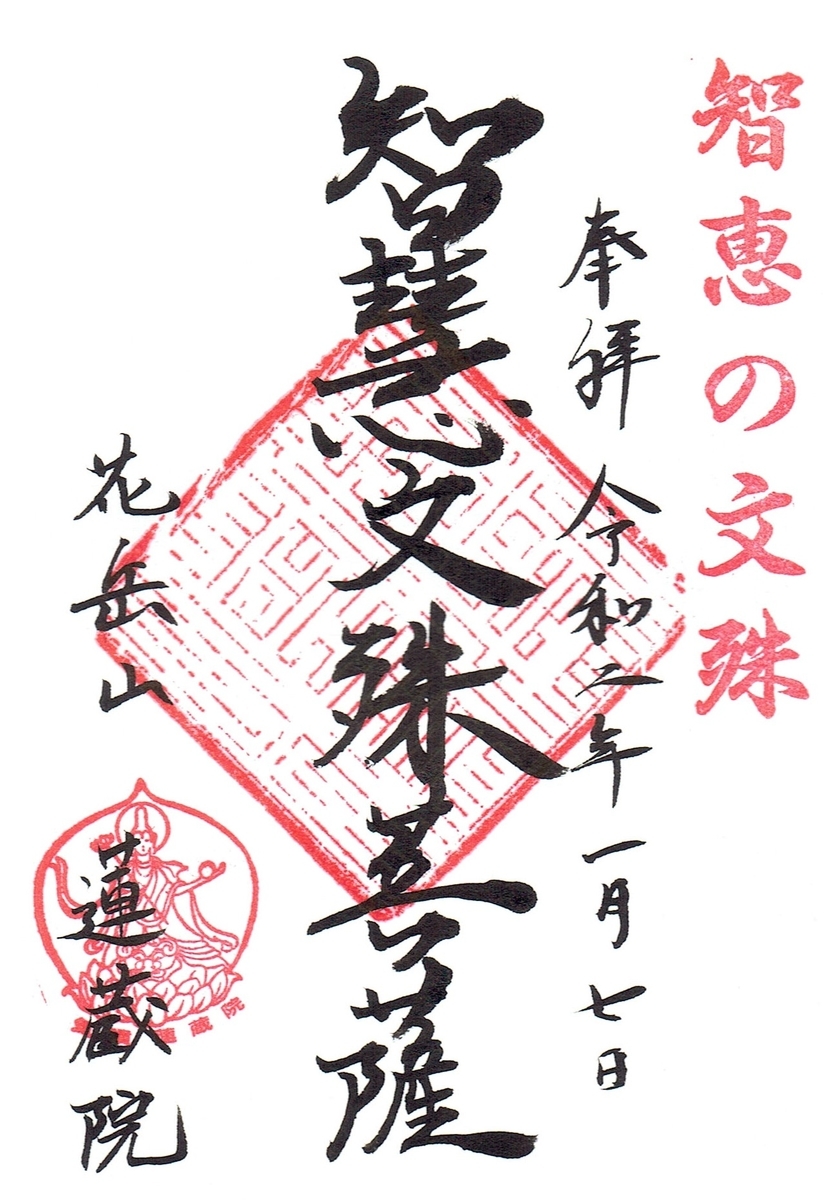 智恵の文殊
奉拝 令和二年 一月 七日
智慧文殊菩薩
花岳山
蓮蔵院
蔵院